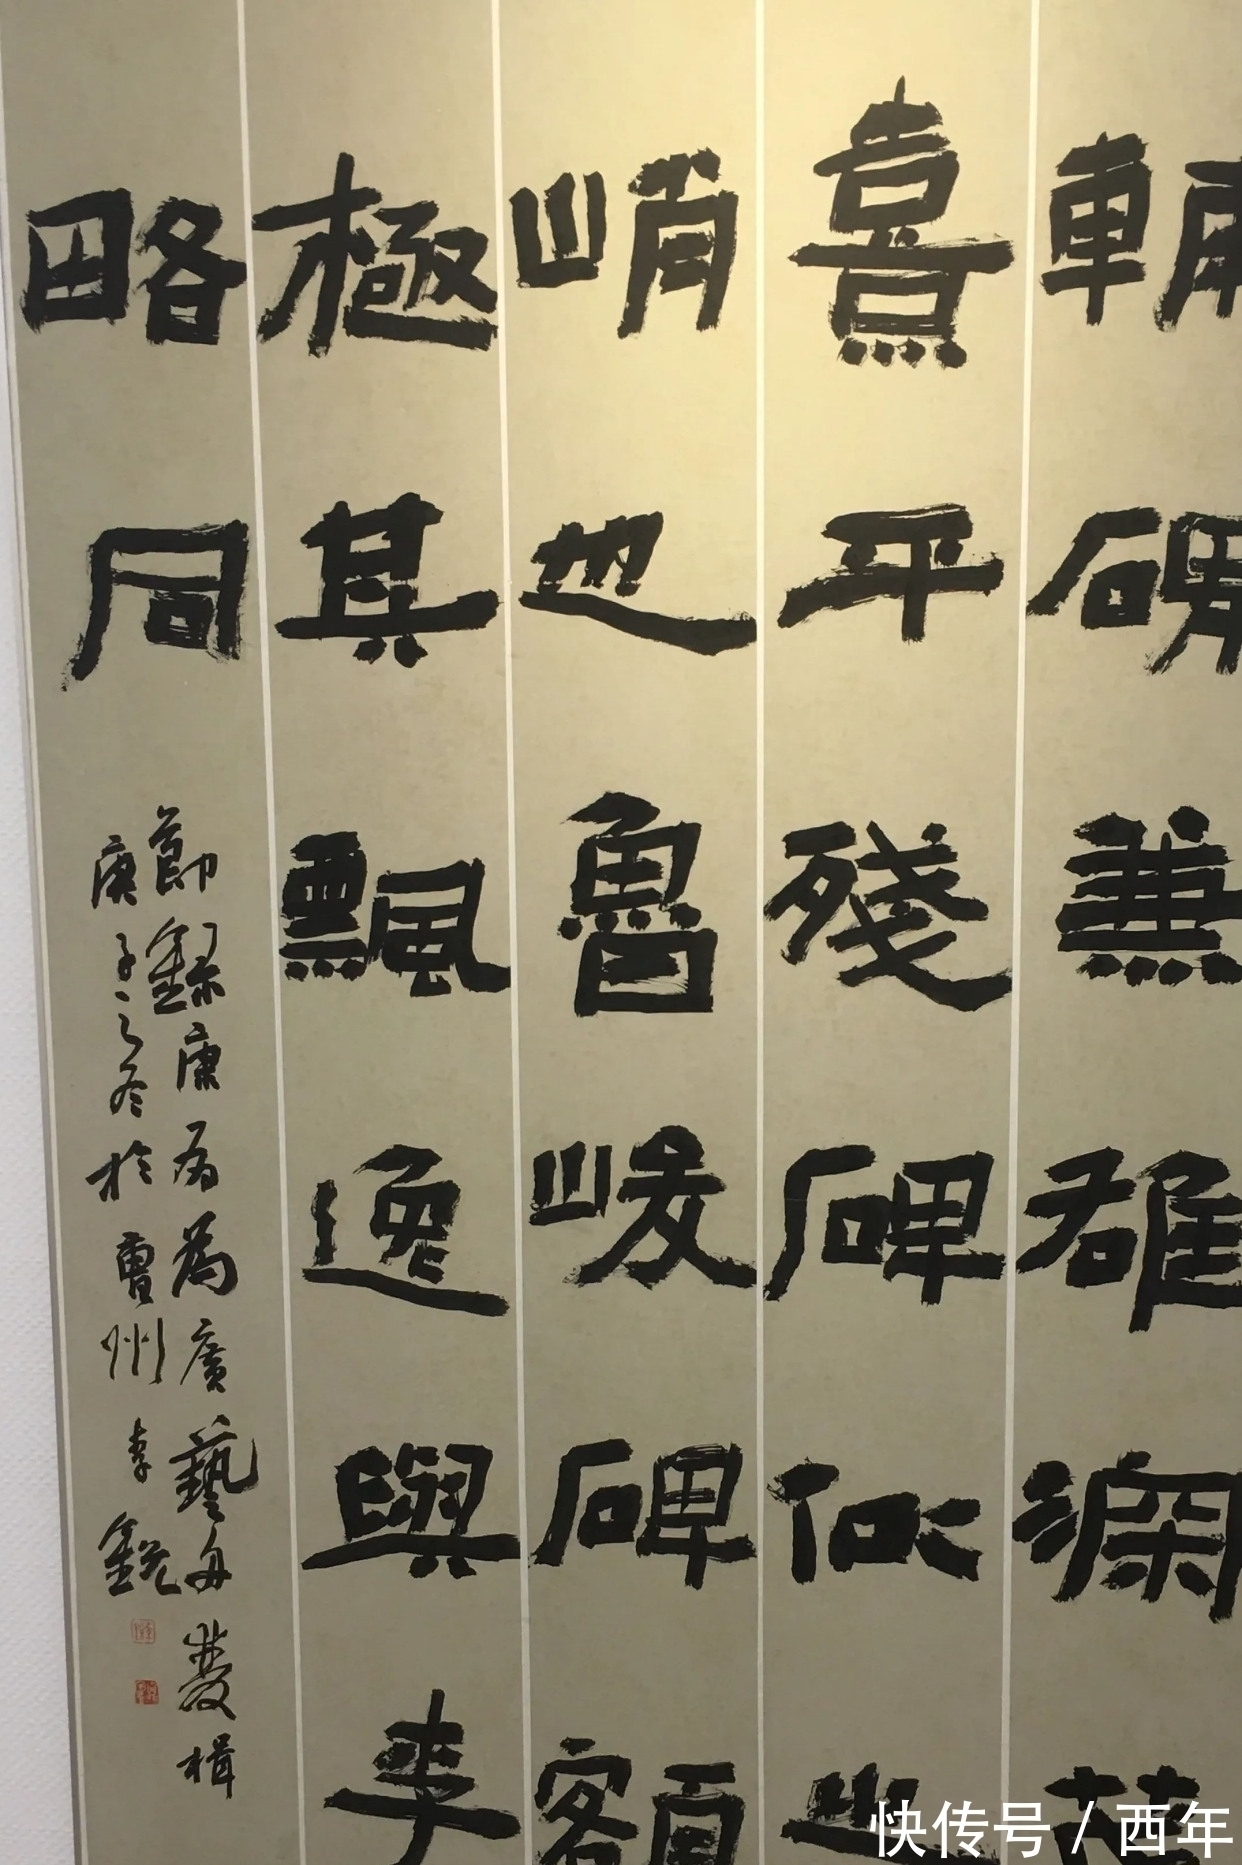 輔碑兼雄深
熹平殘碑似
峭也魯峻碑額
極其飄逸與李
略同
節錄康有為廣藝舟雙楫
庚子之冬於曹州李銳
快传号 / 西年